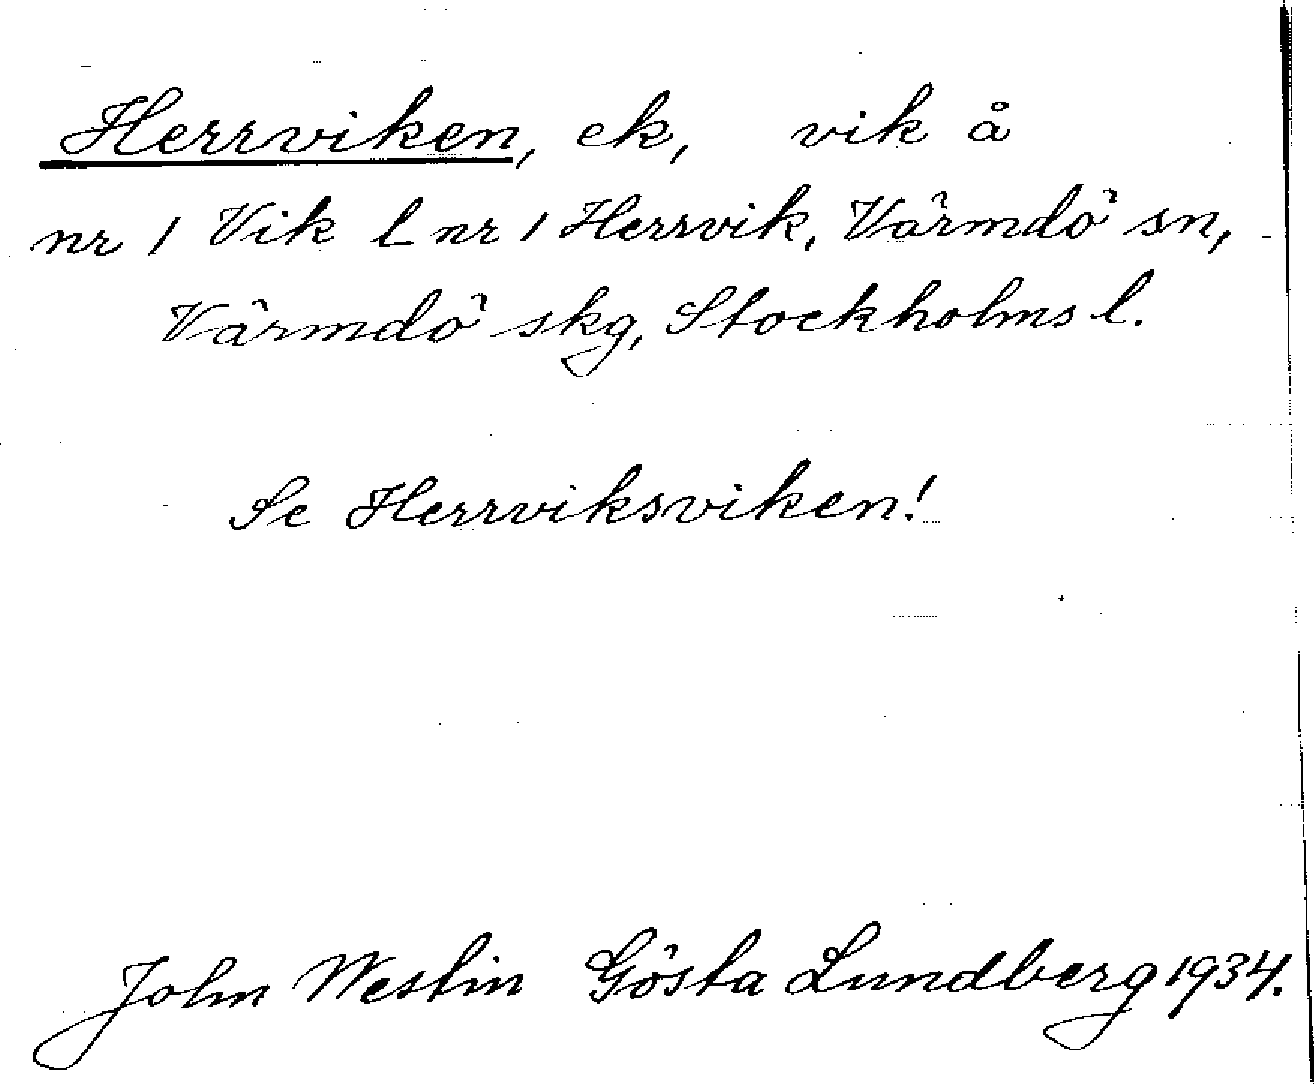 Herrviken, ek, vik å
nr 1 Vik l nr 1 Herrvik, Värmdö sn,
Värmdö skg, Stockholms l.
Se Herrviksviken!
John Westin Gösta Lundberg 1934.